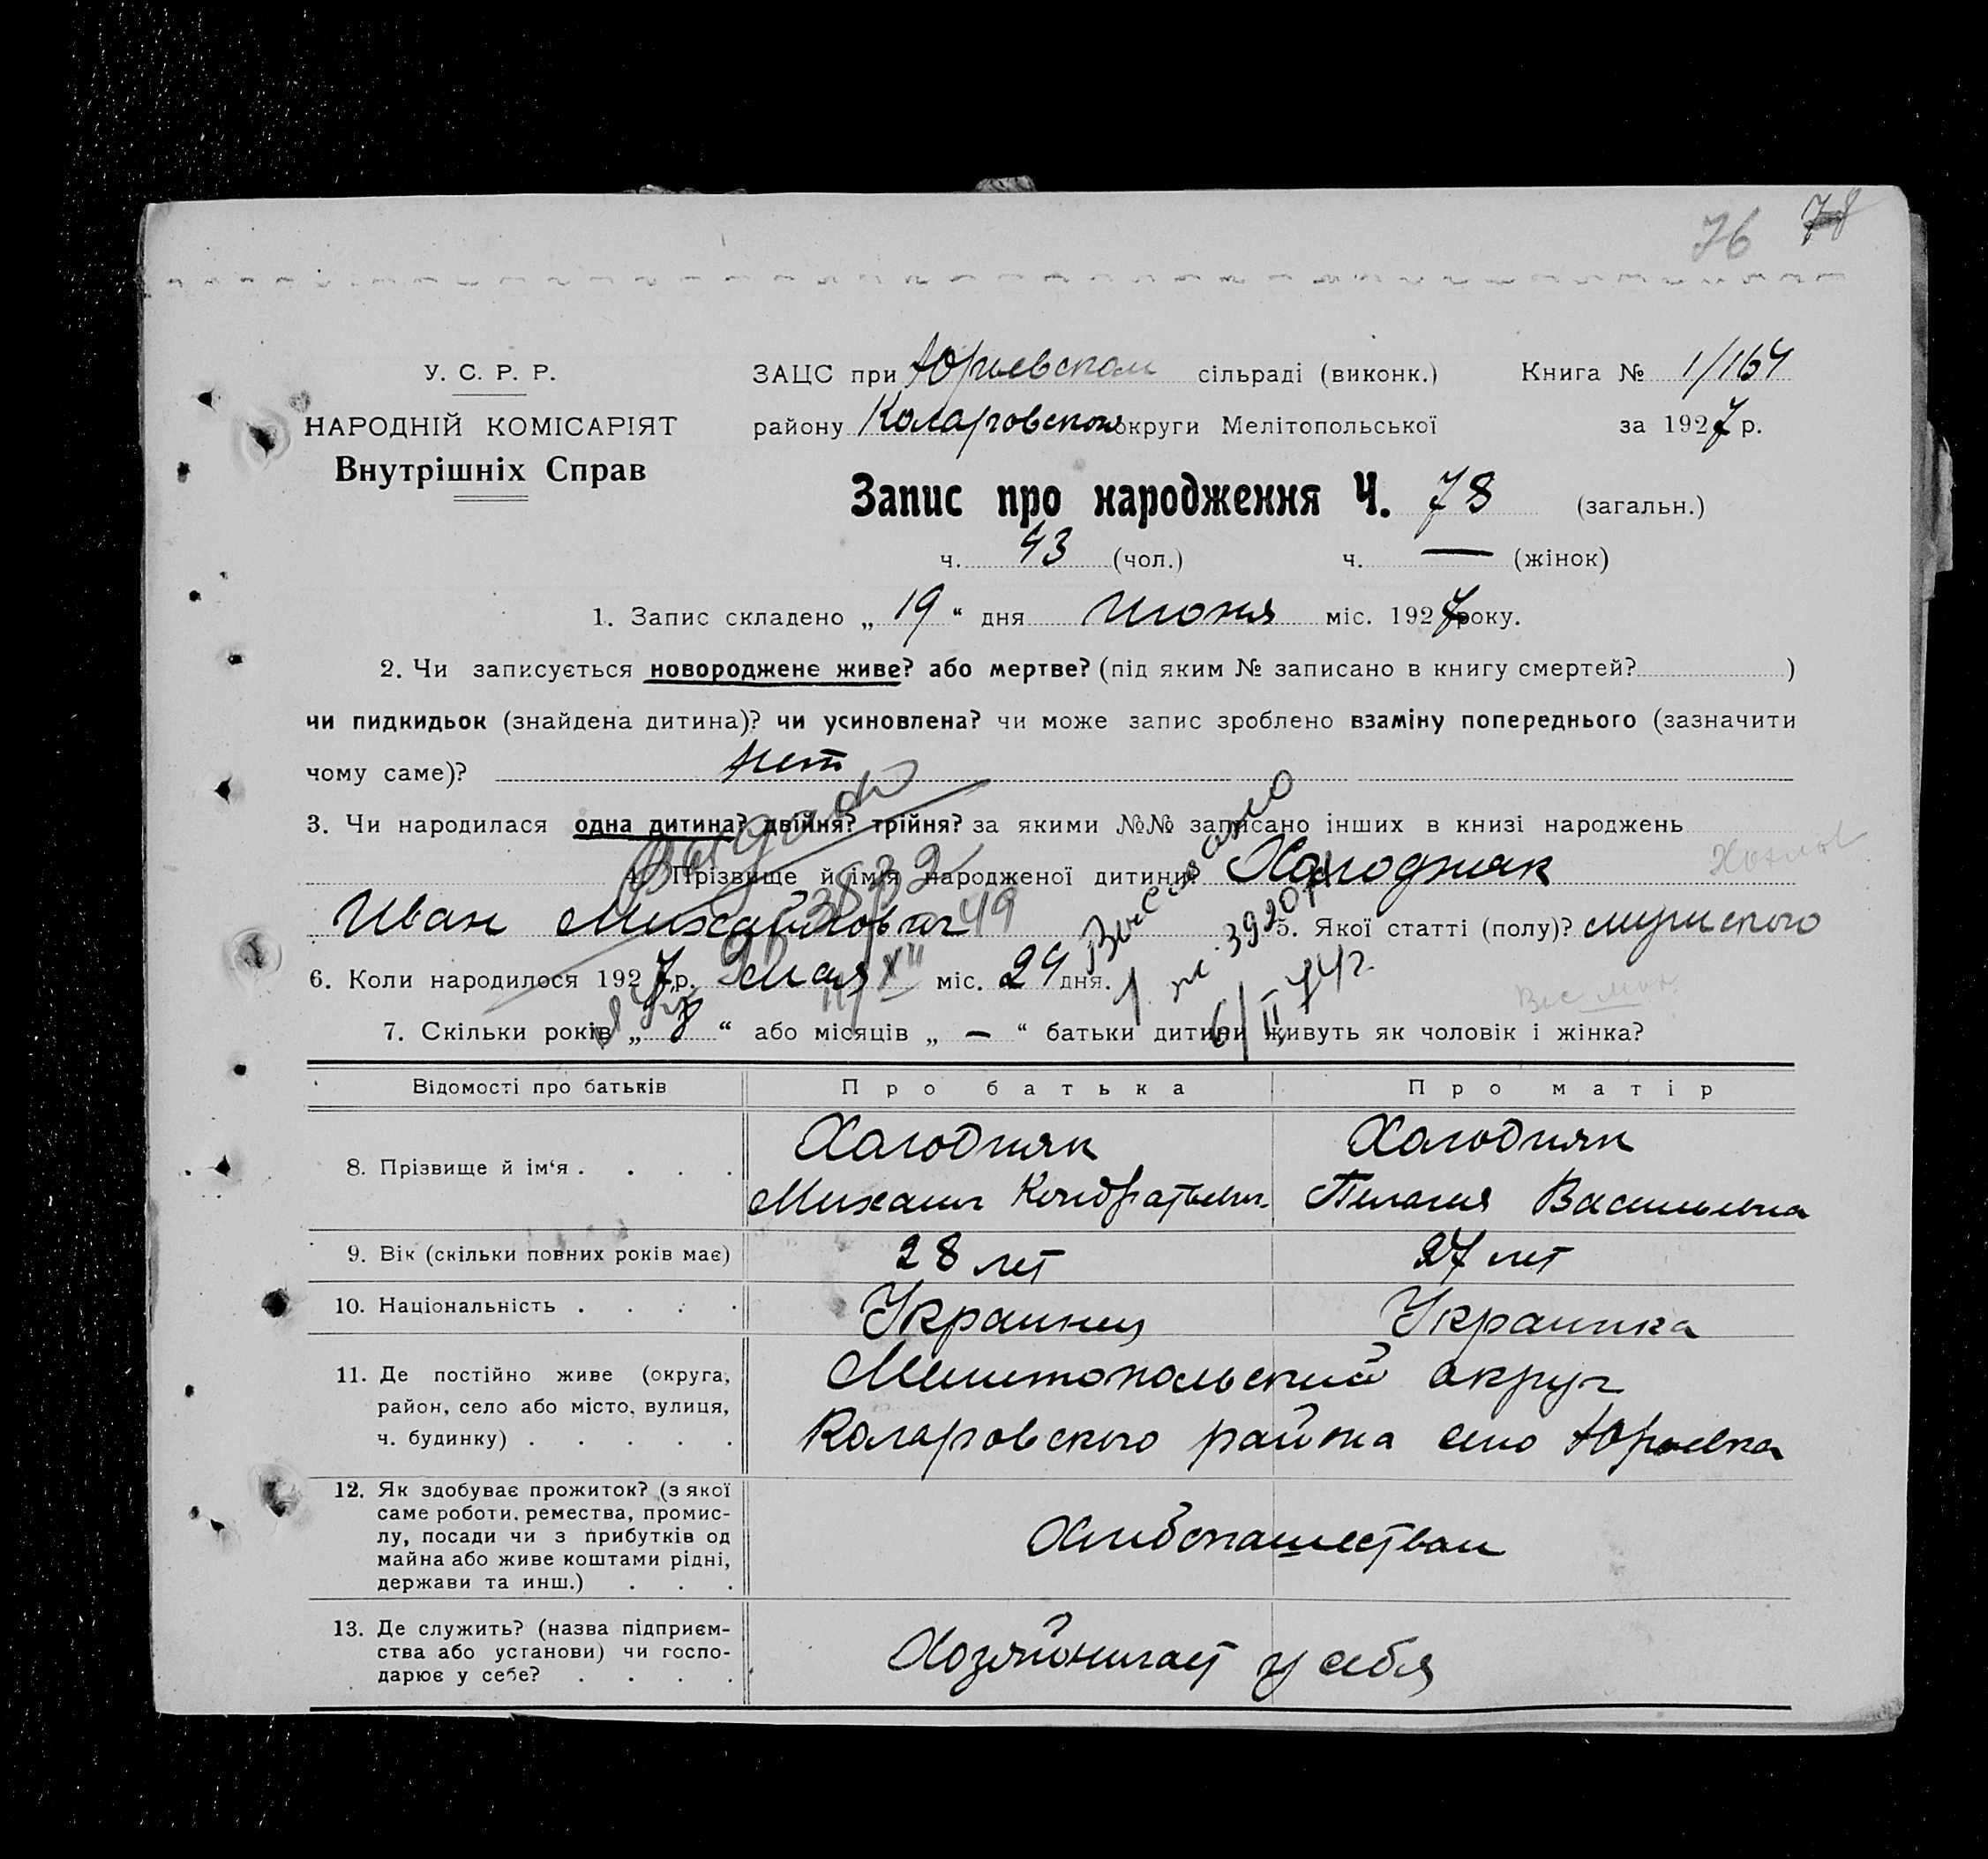 76 78
У. С. Р. Р.
НАРОДНІЙ КОМІСАРІЯТ
Внутрішніх Справ
ЗАЦС при Юрьевском сільраді (виконк.) Книга № 1/164
району Коларовского округи Мелітопольської за 1927 р.
Запис про народження Ч. 78 (загальн.)
ч. 43 (чол.) ч. — (жінок)
1. Запис складено „ 19 “ дня Июня міс. 1927 року.
2. Чи записується новороджене живе? або мертве? (під яким № записано в книгу смертей? )
чи пидкидьок (знайдена дитина)? чи усиновлена? чи може запис зроблено взаміну попереднього (зазначити
чому саме)? нет
3. Чи народилася одна дитина? двійня? трійня? за якими №№ записано інших в книзі народжень
4. Прізвище й ім'я народженої дитини: Холодняк
Иван Михайлович 5. Якої статті (полу)? мужского
6. Коли народилося 1927 р. мая міс. 24 дня.
7. Скільки років „ 8 “ або місяців „ — “ батьки дитини живуть як чоловік і жінка?
Выдано
Выслано
Відомості про батьків Про батька Про матір
8. Прізвище й ім‘я . . . . Халодняк Халодняк
Михаил Кондратьевич Пелагея Васильевна
9. Вік (скільки повних років має) 28 лет 27 лет
10. Національність . . . . Украинец Украинка
11. Де постійно живе (округа,
район, село або місто, вулиця,
ч. будинку) . . . . .
Мелитопольский округ
Коларовского района село Юрьевка
12. Як здобуває прожиток? (з якої
саме роботи, ремества, промис-
лу, посади чи з прибутків од
майна або живе коштами рідні,
держави та инш.) . . .
Хлибопашеством
13. Де служить? (назва підприєм-
ства або установи) чи госпо-
дарює у себе? . . . .
Хозяйничает у себя